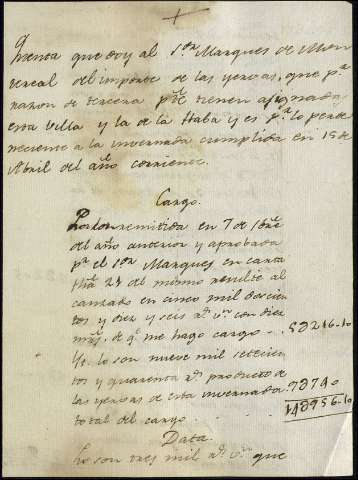 Cuenta que doy al Sor Marques de Mon
rreal del importe de las yervas, que pr
razon de tercera pte tienen asignada
esta Villa y la de la Haba y es pr lo perte
neciente a la invernada cumplida en 15 de
Abril del año corriente.
Cargo.
Por la remitida en 7 de
del año anterior y aprobada
pr el Sor Marques en carta
24 del mismo resulté al
canzado en cinco mil doscien
tos y diez y seis rs vn con diez
mrs. de qe me hago cargo - 5216-10
Yt. lo son nueve mil setecien
tos y quarenta rs producto de
las yervas de esta invernada 9740
total del cargo 14956-10
Data
Lo son tres mil rs vn que